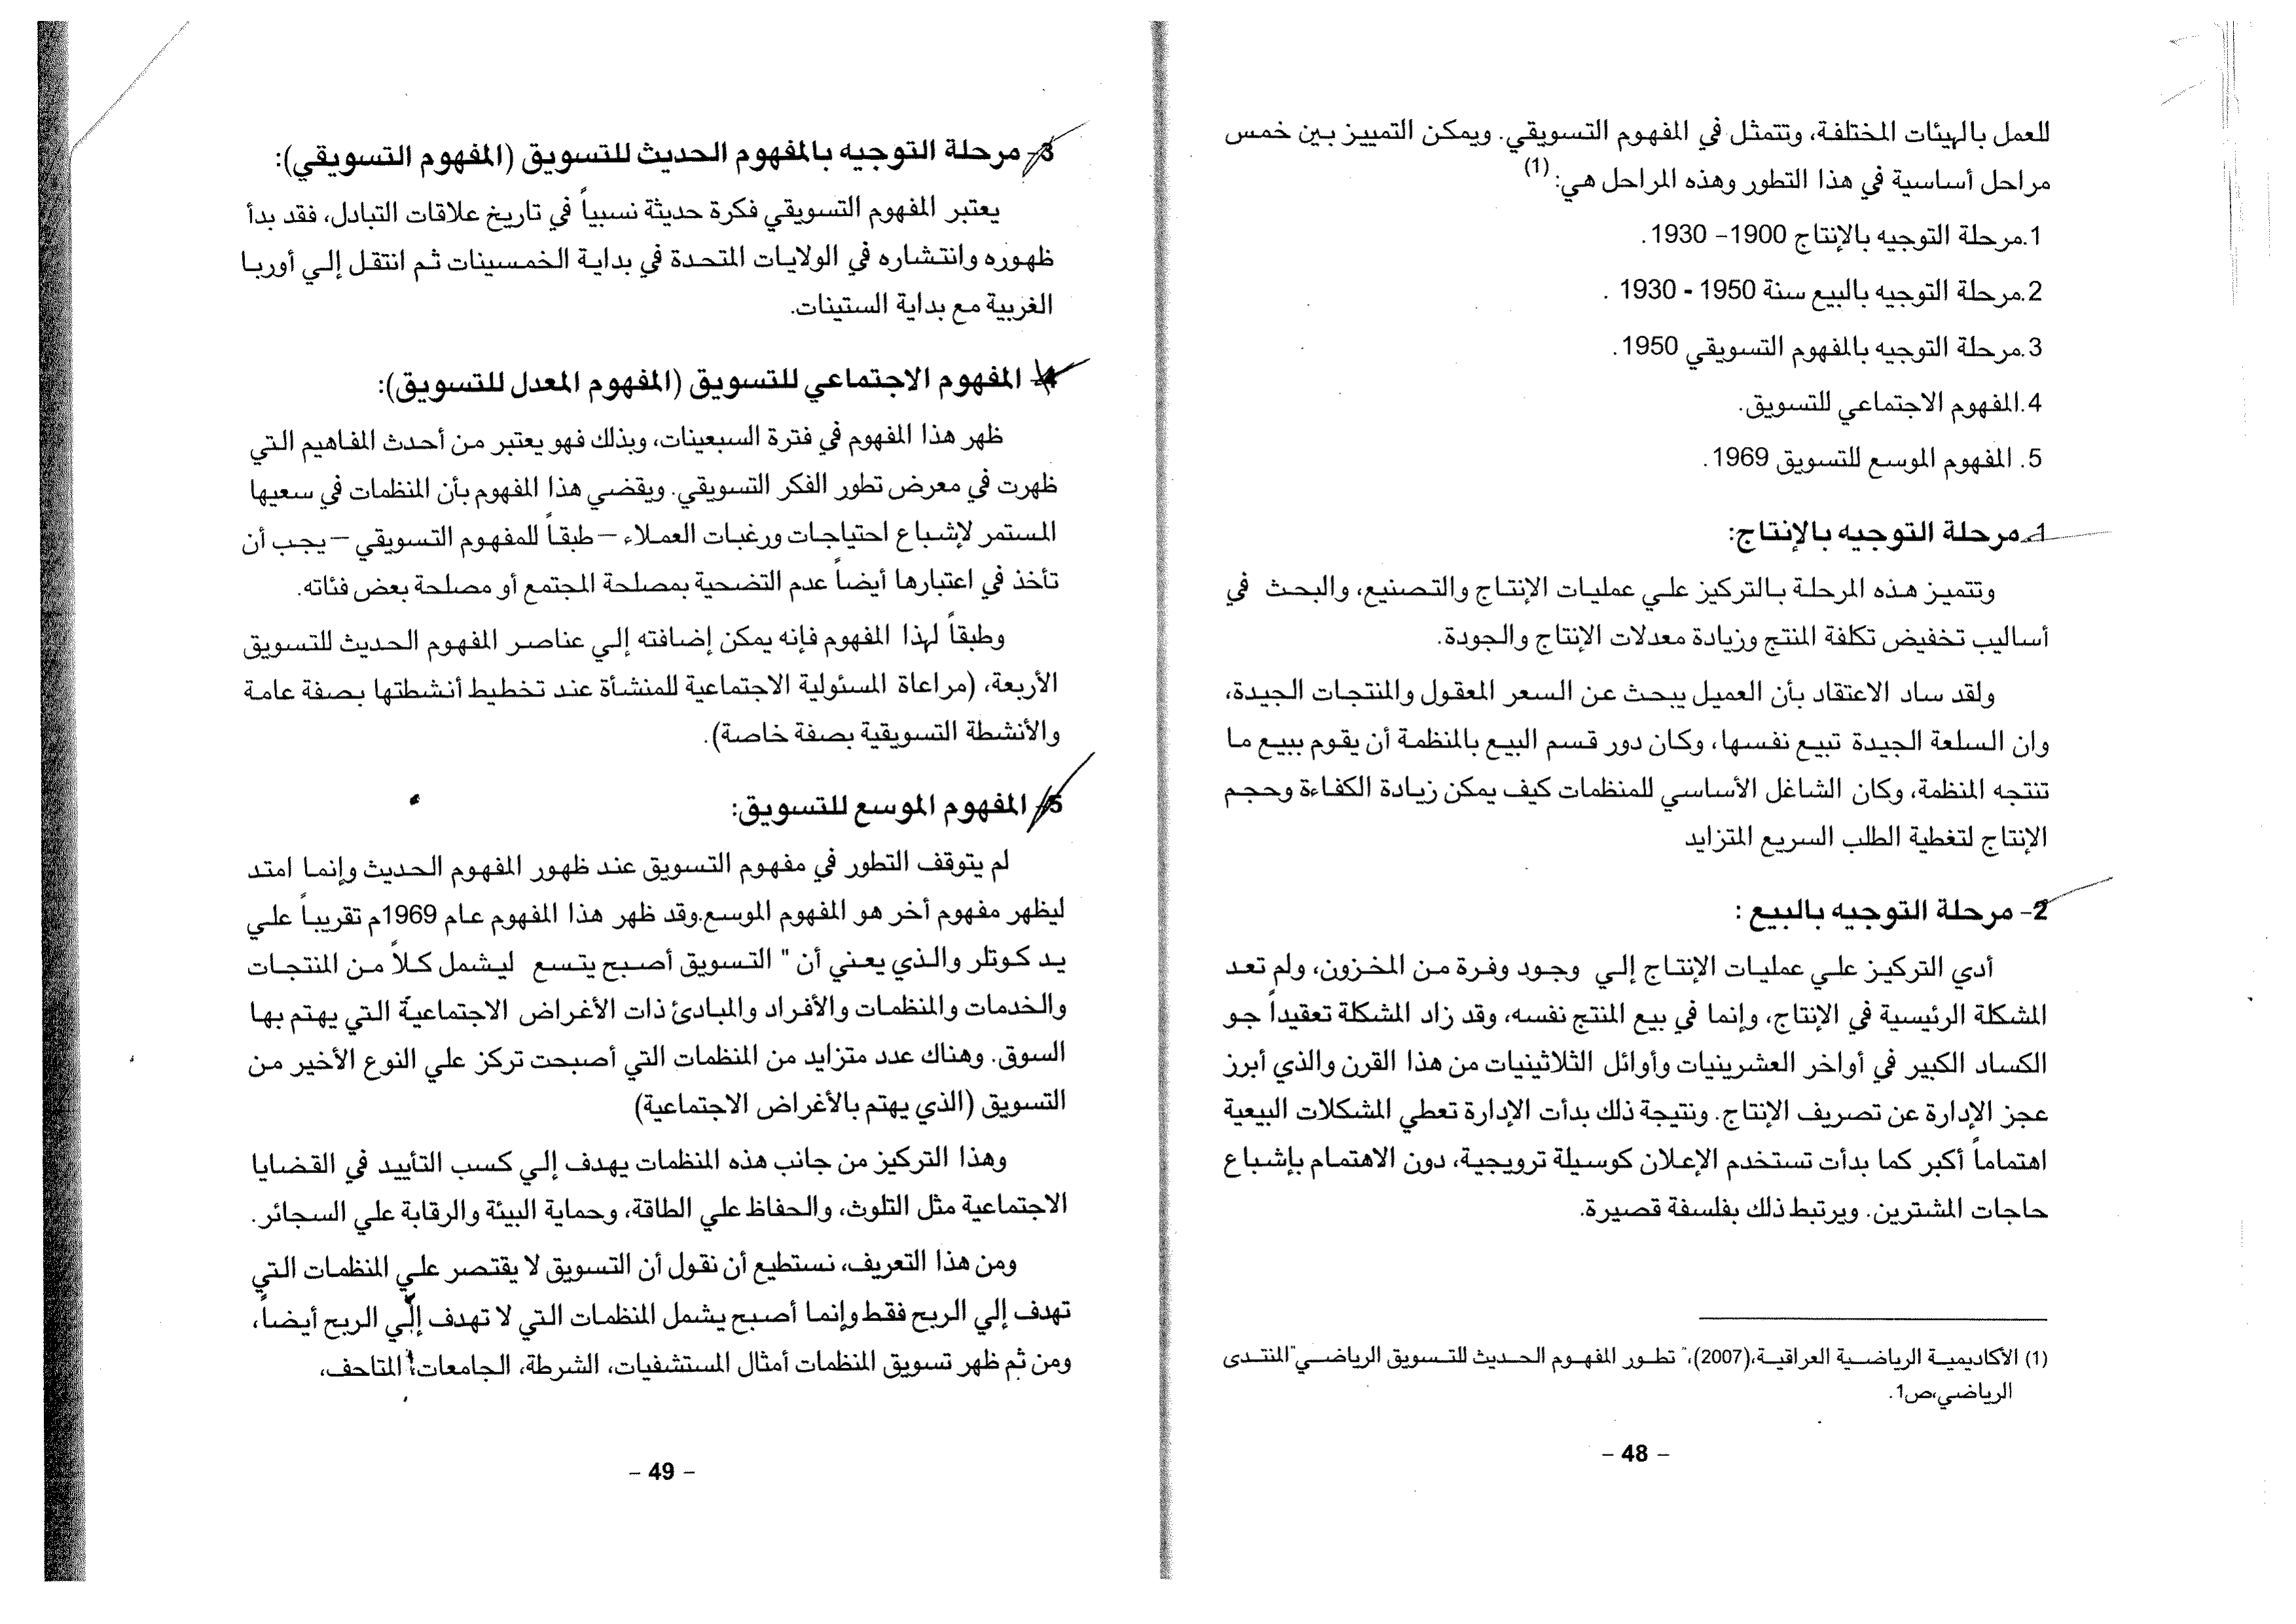 للعمل بالهيئات المختلفة، وتتمثل في المفهوم التسويقي. ويمكن التمييز بين خمس
مراحل أساسية في هذا التطور وهذه المراحل هي: (1)
1.مرحلة التوجيه بالإنتاج 1900– 1930.
2.مرحلة التوجيه بالبيع سنة 1950 - 1930 .
3.مرحلة التوجيه بالمفهوم التسويقي 1950.
4.المفهوم الاجتماعي للتسويق.
5. المفهوم الموسع للتسويق 1969.
1ـ مرحلة التوجيه بالإنتاج:
وتتميز هذه المرحلة بالتركيز علي عمليات الإنتاج والتصنيع، والبحث في
أساليب تخفيض تكلفة المنتج وزيادة معدلات الإنتاج والجودة.
ولقد ساد الاعتقاد بأن العميل يبحث عن السعر المعقول والمنتجات الجيدة،
وان السلعة الجيدة تبيع نفسها، وكان دور قسم البيع بالمنظمة أن يقوم ببيع ما
تنتجه المنظمة، وكان الشاغل الأساسي للمنظمات كيف يمكن زيادة الكفاءة وحجم
الإنتاج لتغطية الطلب السريع المتزايد
2- مرحلة التوجيه بالبيع :
أدي التركيز علي عمليات الإنتاج إلي وجود وفرة من المخزون، ولم تعد
المشكلة الرئيسية في الإنتاج، وإنما في بيع المنتج نفسه، وقد زاد المشكلة تعقيداً جو
الكساد الكبير في أواخر العشرينيات وأوائل الثلاثينيات من هذا القرن والذي أبرز
عجز الإدارة عن تصريف الإنتاج. ونتيجة ذلك بدأت الإدارة تعطي المشكلات البيعية
اهتماماً أكبر كما بدأت تستخدم الإعلان كوسيلة ترويجية، دون الاهتمام بإشباع
حاجات المشترين. ويرتبط ذلك بفلسفة قصيرة.
(1) الأكاديمية الرياضية العراقية،(2007)،" تطور المفهوم الحديث للتسويق الرياضي"المنتدى
الرياضي،ص1.
– 48 –
3- مرحلة التوجيه بالمفهوم الحديث للتسويق (المفهوم التسويقي):
يعتبر المفهوم التسويقي فكرة حديثة نسبياً في تاريخ علاقات التبادل، فقد بدأ
ظهوره وانتشاره في الولايات المتحدة في بداية الخمسينات ثم انتقل إلي أوربا
الغربية مع بداية الستينات.
4- المفهوم الاجتماعي للتسويق (المفهوم المعدل للتسويق):
ظهر هذا المفهوم في فترة السبعينات، وبذلك فهو يعتبر من أحدث المفاهيم التي
ظهرت في معرض تطور الفكر التسويقي. ويقضي هذا المفهوم بأن المنظمات في سعيها
المستمر لإشباع احتياجات ورغبات العملاء –طبقاً للمفهوم التسويقي –يجب أن
تأخذ في اعتبارها أيضاً عدم التضحية بمصلحة المجتمع أو مصلحة بعض فئاته.
وطبقاً لهذا المفهوم فإنه يمكن إضافته إلي عناصر المفهوم الحديث للتسويق
الأربعة، (مراعاة المسئولية الاجتماعية للمنشأة عند تخطيط أنشطتها بصفة عامة
والأنشطة التسويقية بصفة خاصة).
5- المفهوم الموسع للتسويق:
لم يتوقف التطور في مفهوم التسويق عند ظهور المفهوم الحديث وإنما امتد
ليظهر مفهوم أخر هو المفهوم الموسع.وقد ظهر هذا المفهوم عام 1969م تقريباً علي
يد كوتلر والذي يعني أن " التسويق أصبح يتسع ليشمل كلاً من المنتجات
والخدمات والمنظمات والأفراد والمبادئ ذات الأغراض الاجتماعية التي يهتم بها
السوق. وهناك عدد متزايد من المنظمات التي أصبحت تركز علي النوع الأخير من
التسويق (الذي يهتم بالأغراض الاجتماعية)
وهذا التركيز من جانب هذه المنظمات يهدف إلي كسب التأييد في القضايا
الاجتماعية مثل التلوث، والحفاظ علي الطاقة، وحماية البيئة والرقابة علي السجائر.
ومن هذا التعريف، نستطيع أن نقول أن التسويق لا يقتصر علي المنظمات التي
تهدف إلي الربح فقط وإنما أصبح يشمل المنظمات التي لا تهدف إلي الربح أيضاً،
ومن ثم ظهر تسويق المنظمات أمثال المستشفيات، الشرطة، الجامعات، المتاحف،
– 49 –